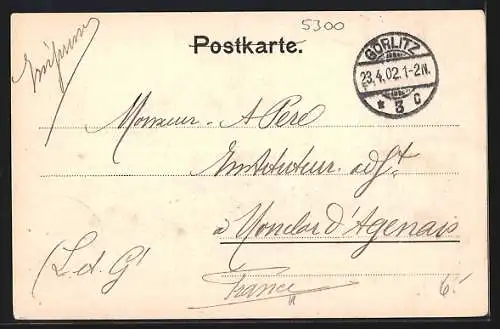 5300
Postkarte.
GÖRLITZ
23.4.02.1-2N.
* 3 c
Monsieur - A Péré
Instituteur adjt
à Monclar d'Agenais
(L. d. G)
France
6.-